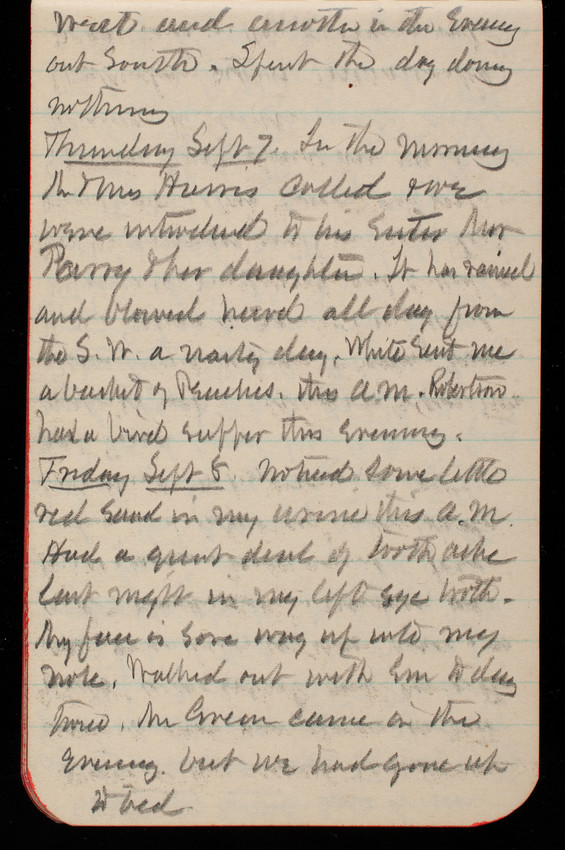 West and another in the Evening
out South. Spent the day doing
nothing
Thursday Sept 7. In the morning
Mr & Mrs Harris called & we
were introduced to his Sister Mrs
Parry & her daughter. It has rained
and blowed hard all day from
the S. W. a nasty day. White Sent me
a basket of Peaches. this A.M. Robertson
had a bird supper this evening.
Friday Sept 8. noticed some little
red Sand in my urine this A.M.
Had a great deal of tooth ache
last night in my left eye tooth.
My face is sore way up into my
nose. Walked out with Em to day
twice. Mr Green came in the
Evening. but we had gone up
to bed